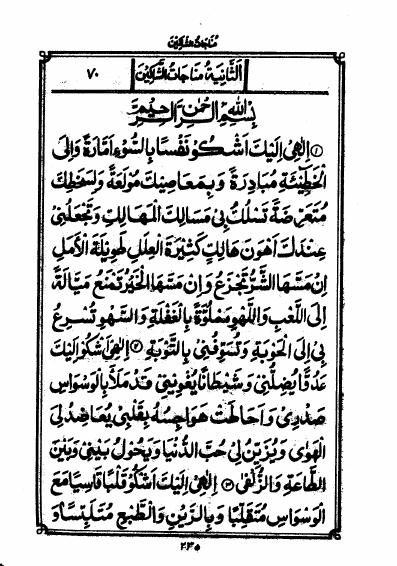 مناجات الشاكين
٧٠ الثانية مناجات الشاكين
بسم الله الرحمن الرحيم
(١) الهي اليك اشكو نفسا بالسوء امارة والى
الخطيئة مبادرة وبمعاصيك مولعة ولسخطك
متعرضة تسلك بي مسالك المهالك وتجعلني
عندك اهون هالك كثيرة العلل طويلة الامل
ان مسها الشر تجزع وان مسها الخير تمنع ميالة
الى اللعب واللهو مملوة بالغفلة والسهو تسرع
بي الى الحوبة وتسوفني بالتوبة (٢) الهي اشكو اليك
عدوا يضلني وشيطانا يغويني قد ملأ بالوسواس
صدري واحاطت هواجسه بقلبي يعاضد لي
الهوى ويزين لي حب الدنيا ويحول بيني وبين
الطاعة والزلفى (٣) الهي اليك اشكو قلبا قاسيا مع
الوسواس متقلبا وبالرين والطبع متلبسا و
٢٢٠